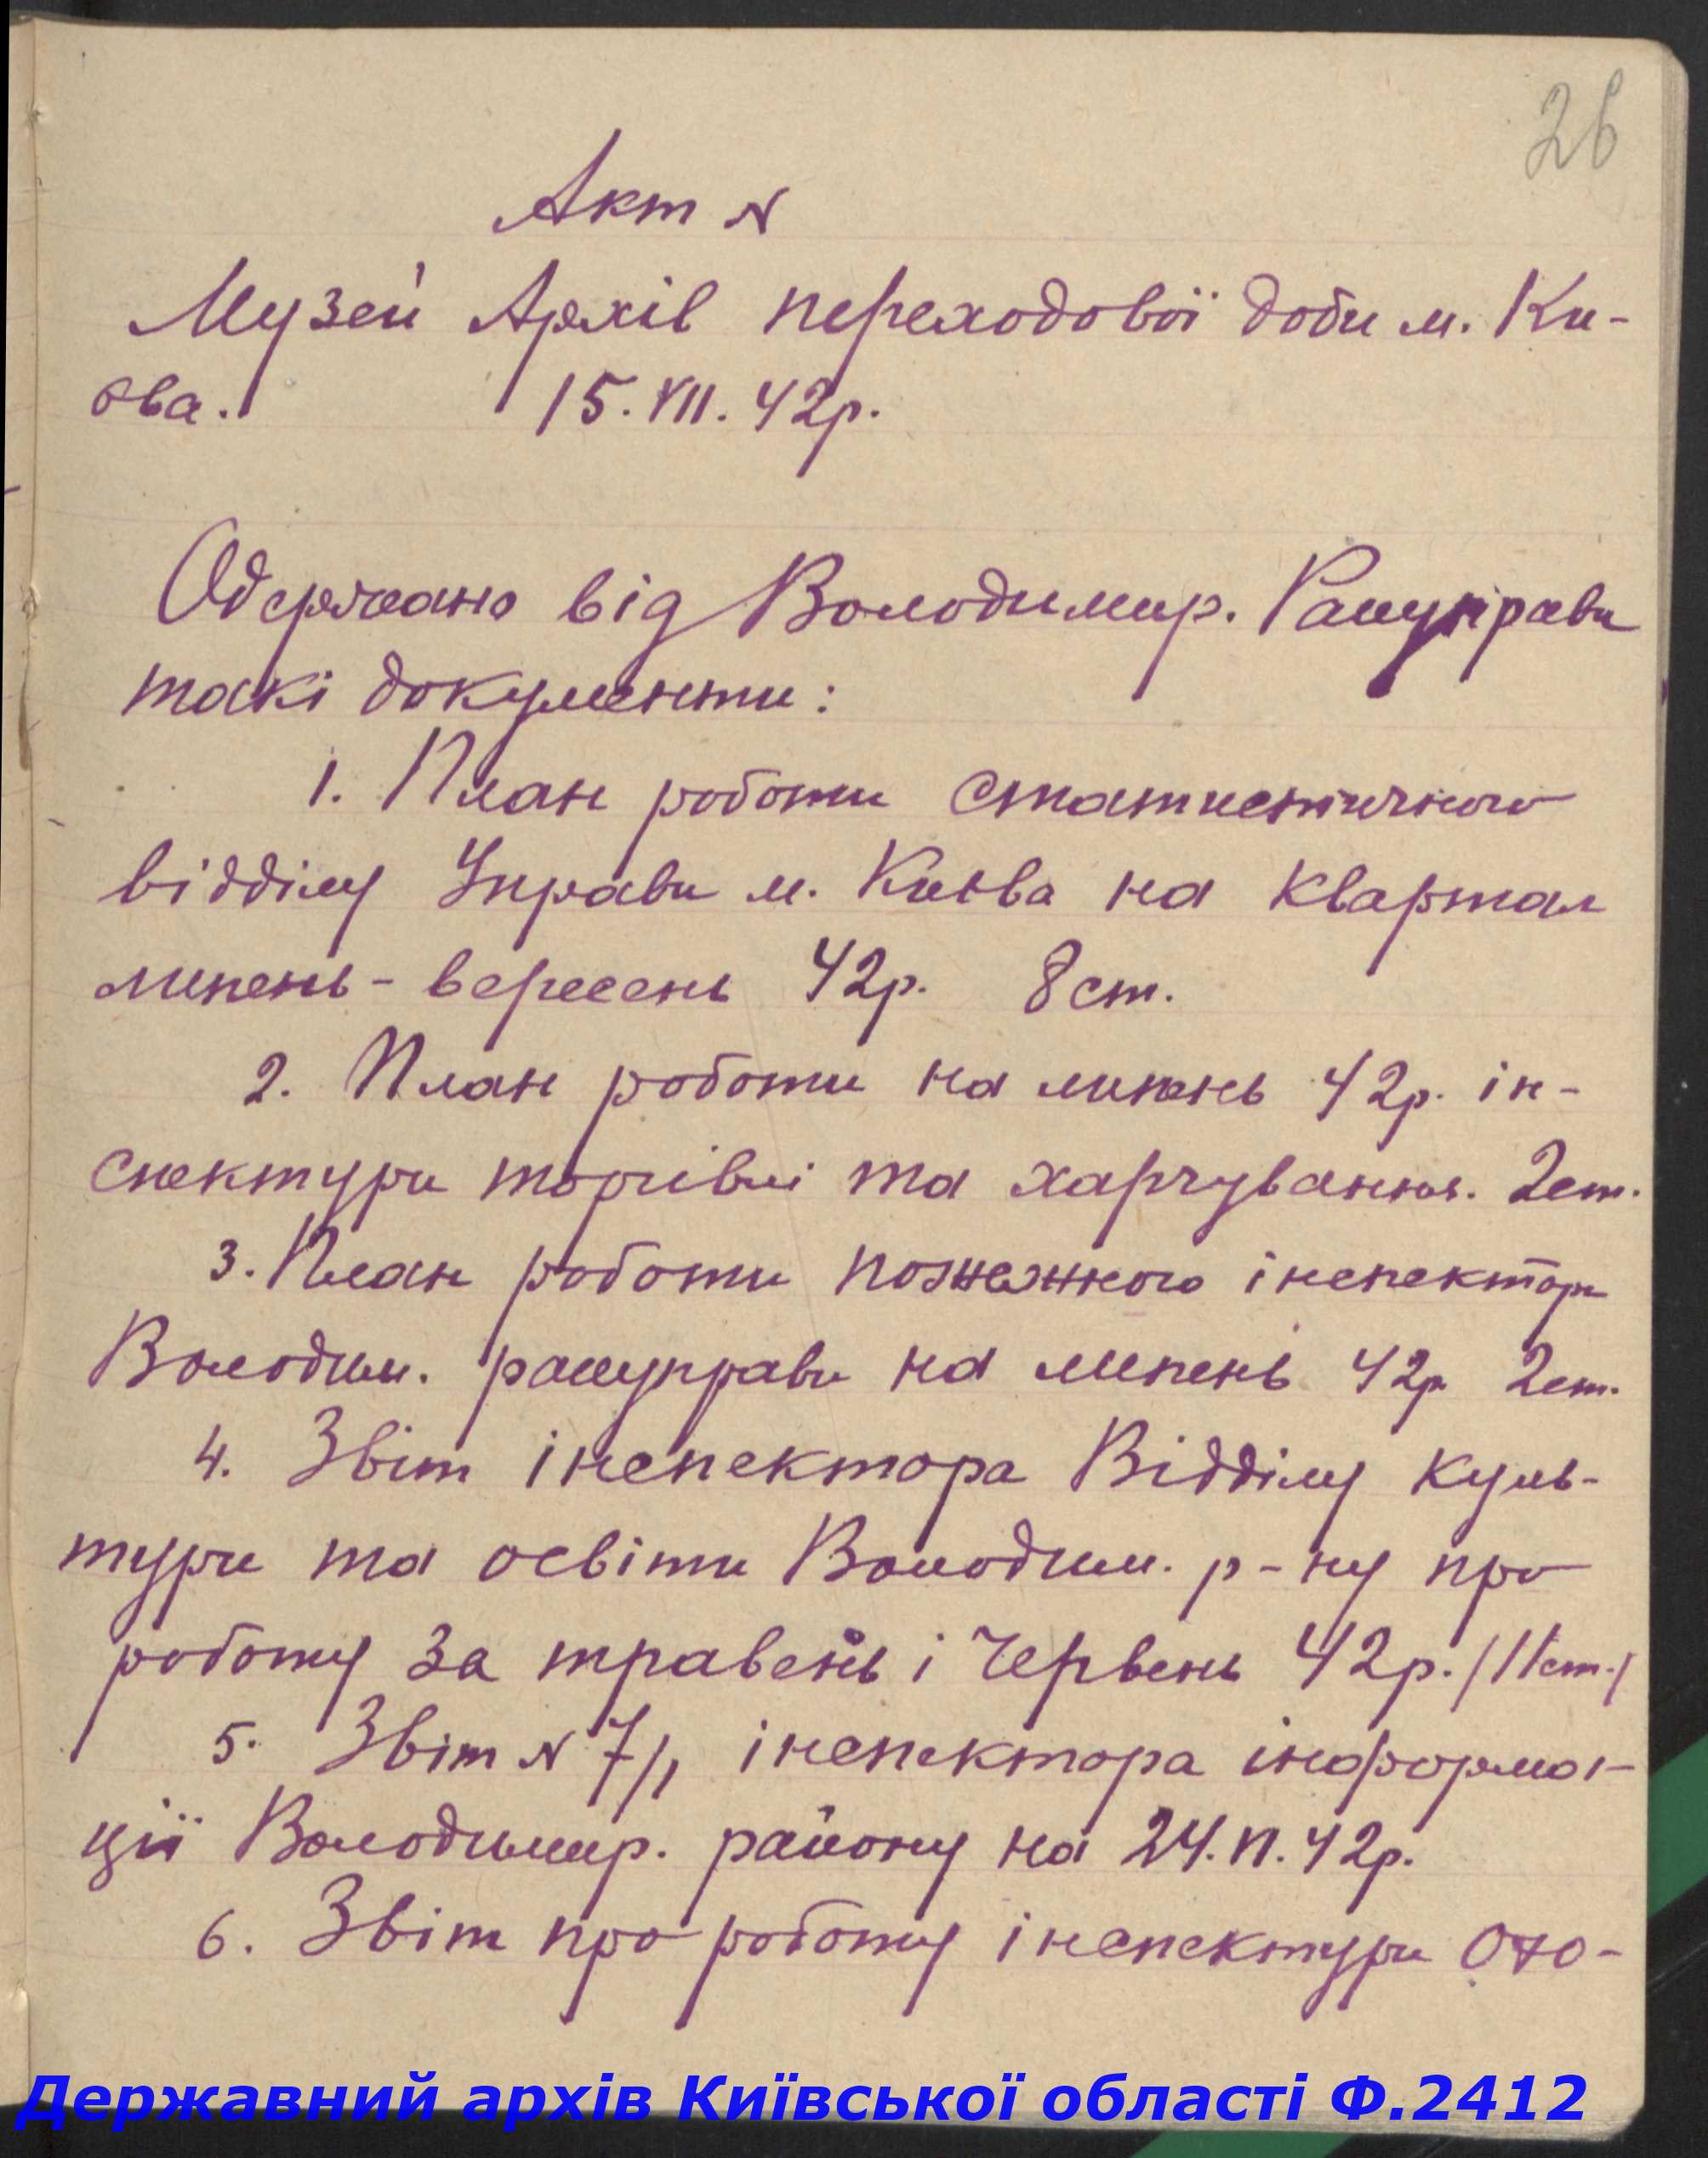 26
Акт №
Музей Архів переходової доби м. Ки-
єва. 15.VII.42р.
Одержано від Володимир. Райуправи
такі документи:
1. План роботи статистичного
відділу Управи м. Києва на квартал
липень - вересень 42р. 8 ст.
2. План роботи на липень 42р. ін-
спектури торгівлі та харчування. 2 ст.
3. План роботи пожежного інспектора
Володим. райуправи на липень 42р 2 ст.
4. Звіт інспектора Відділу куль-
тури та освіти Володим. р-ну про
роботу за травень і червень 42р. /11 ст./
5. Звіт № 7/1 інспектора інформа-
ції Володимир. району на 24.VI.42р.
6. Звіт про роботу інспектури Охо-
Державний архів Київської області Ф.2412